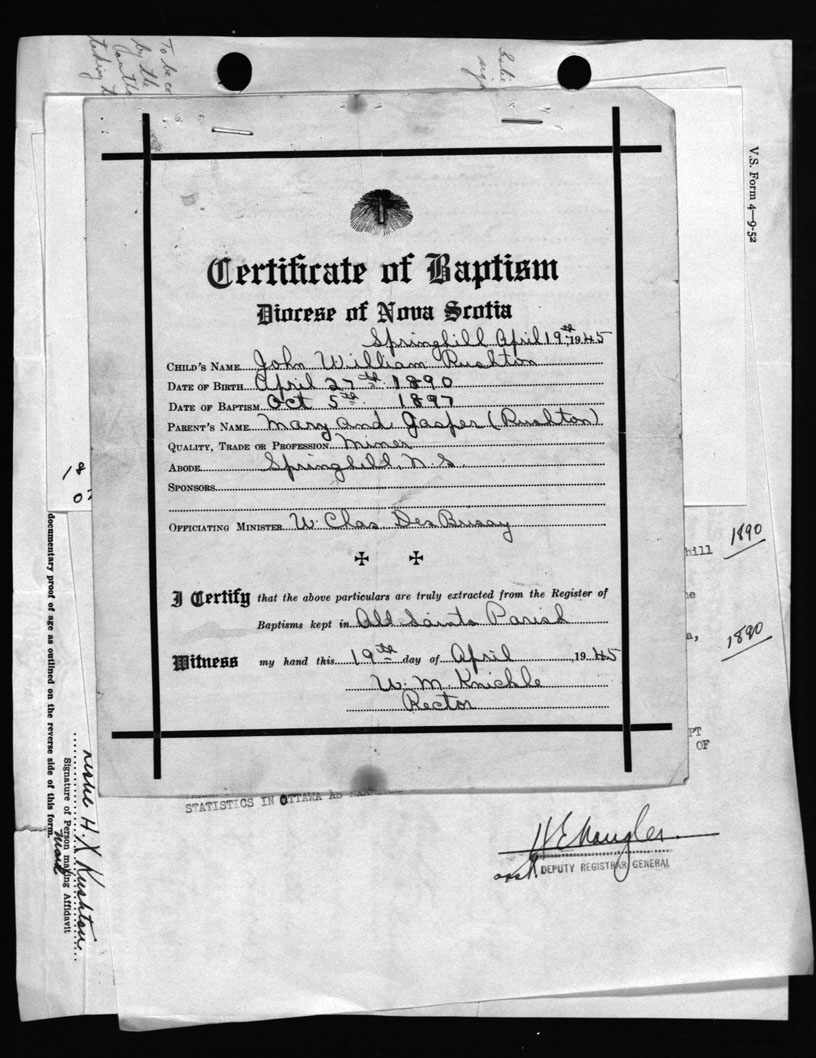 To be co
by the
taking t
V.S. Form 4—9-52
Certificate of Baptism
Diocese of Nova Scotia
Springhill April 19th, 1945
CHILD'S NAME John William Rushton
DATE OF BIRTH April 27th 1890
DATE OF BAPTISM Oct 5th 1897
PARENT'S NAME Mary and Jasper (Rushton)
QUALITY, TRADE OR PROFESSION Miner
ABODE Springhill, N.S.
SPONSORS
OFFICIATING MINISTER W. Chas DesBrisay
I Certify that the above particulars are truly extracted from the Register of
Baptisms kept in All Saints Parish
Witness my hand this 19th day of April, 1945
W. M. Knickle
Rector
18
hill 1890
ne
a, 1890
PT
OF
STATISTICS IN OTTAWA AS
DEPUTY REGISTRAR GENERAL
documentary proof of age as outlined on the reverse side of this form.
H. X Rushton
mark
Signature of Person making Affidavit